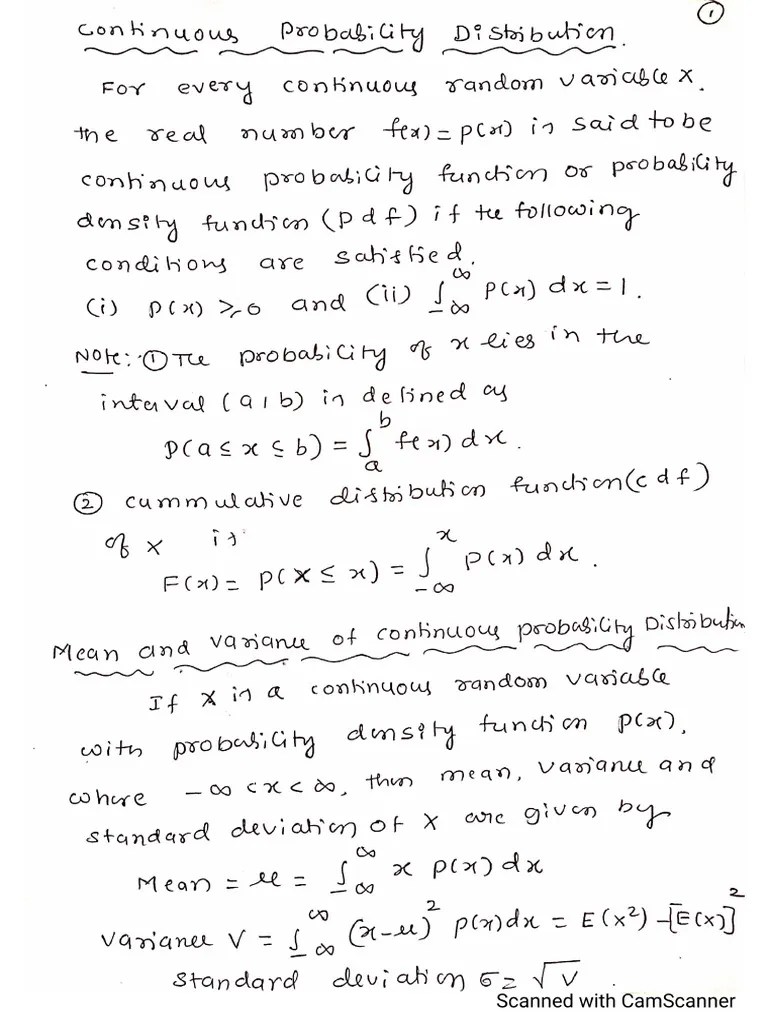 ①
Continuous Probability Distribution.
For every continuous random variable X.
the real number f(x) = p(x) is said to be
continuous probability function or probability
density function (pdf) if the following
conditions are satisfied.
(i) P(x) ≥ 0 and (ii) ∫_{-∞}^{∞} P(x) dx = 1.
Note: ① The probability of x lies in the
interval (a, b) is defined as
P(a ≤ x ≤ b) = ∫_{a}^{b} f(x) dx.
② cummulative distribution function (cdf)
of X is
F(x) = P(X ≤ x) = ∫_{-∞}^{x} P(x) dx.
Mean and variance of continuous probability Distribution
If X is a continuous random variable
with probability density function P(x),
where -∞ < x < ∞, then mean, variance and
standard deviation of X are given by
Mean = μ = ∫_{-∞}^{∞} x P(x) dx
Variance V = ∫_{-∞}^{∞} (x-μ)² P(x) dx = E(x²) - [E(x)]²
Standard deviation σ = √V
Scanned with CamScanner